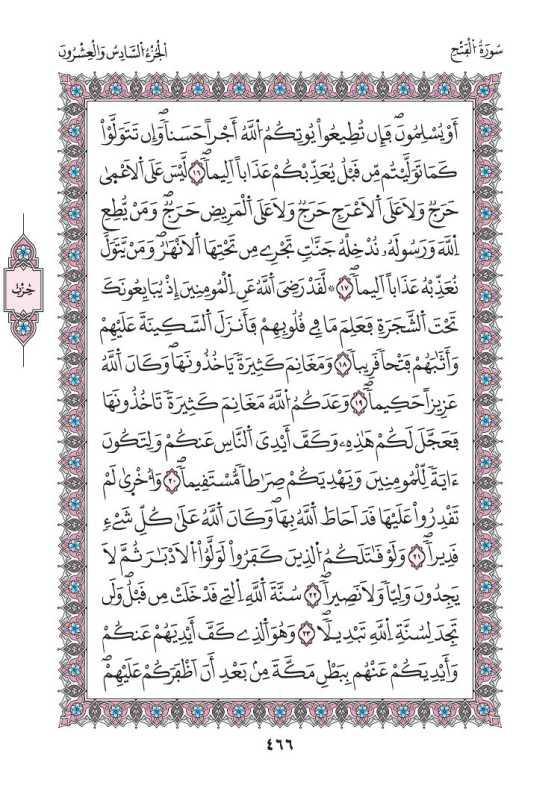 سُورَةُ الْفَتْحِ
الْجُزْءُ السَّادِسُ وَالْعِشْرُونَ
أَوْ يُسْلِمُونَ فَإِن تُطِيعُواْ يُوتِكُمُ اللَّهُ أَجْراً حَسَناً وَإِن تَتَوَلَّوْاْ
كَمَا تَوَلَّيْتُم مِّن قَبْلُ يُعَذِّبْكُمْ عَذَاباً اَلِيماً ١٦ لَّيْسَ عَلَى اَلَاعْمٰى
حَرَجٌ وَلَا عَلَى اَلَاعْرَجِ حَرَجٌ وَلَا عَلَى اَلْمَرِيضِ حَرَجٌ وَمَنْ يُّطِعِ
اِللَّهَ وَرَسُولَهُۥ نُدْخِلْهُ جَنَّٰتٍ تَجْرِے مِن تَحْتِهَا اَلَانْهَٰرُ وَمَنْ يَّتَوَلَّ
نُعَذِّبْهُ عَذَاباً اَلِيماً ١٧ ۞ لَّقَدْ رَضِيَ اَللَّهُ عَنِ اِلْمُومِنِينَ إِذْ يُبَايِعُونَكَ
تَحْتَ اَلشَّجَرَةِ فَعَلِمَ مَا فِے قُلُوبِهِمْ فَأَنزَلَ اَلسَّكِينَةَ عَلَيْهِمْ
وَأَثَٰبَهُمْ فَتْحاً قَرِيباً ١٨ وَمَغَانِمَ كَثِيرَةً يَاخُذُونَهَا وَكَانَ اَللَّهُ
عَزِيزاً حَكِيماً ١٩ وَعَدَكُمُ اللَّهُ مَغَانِمَ كَثِيرَةً تَاخُذُونَهَا
فَعَجَّلَ لَكُمْ هَٰذِهِۦ وَكَفَّ أَيْدِيَ اَلنَّاسِ عَنكُمْ وَلِتَكُونَ
ءَايَةً لِّلْمُومِنِينَ وَيَهْدِيَكُمْ صِرَٰطاً مُّسْتَقِيماً ٢٠ وَأُخْر۪ىٰ لَمْ
تَقْدِرُواْ عَلَيْهَا قَدَ اَحَاطَ اَللَّهُ بِهَا وَكَانَ اَللَّهُ عَلَىٰ كُلِّ شَےْءٍ
قَدِيراً ٢١ وَلَوْ قَٰتَلَكُمُ الذِينَ كَفَرُواْ لَوَلَّوُاْ اُلَادْبَٰرَ ثُمَّ لَا
يَجِدُونَ وَلِيّاً وَلَا نَصِيراً ٢٢ سُنَّةَ اَللَّهِ اِلتِے قَدْ خَلَتْ مِن قَبْلُ وَلَن
تَجِدَ لِسُنَّةِ اِللَّهِ تَبْدِيلاً ٢٣ وَهُوَ اَلذِے كَفَّ أَيْدِيَهُمْ عَنكُمْ
وَأَيْدِيَكُمْ عَنْهُم بِبَطْنِ مَكَّةَ مِنۢ بَعْدِ أَنَ اَظْفَرَكُمْ عَلَيْهِمْ
حِزْب
٤٦٦